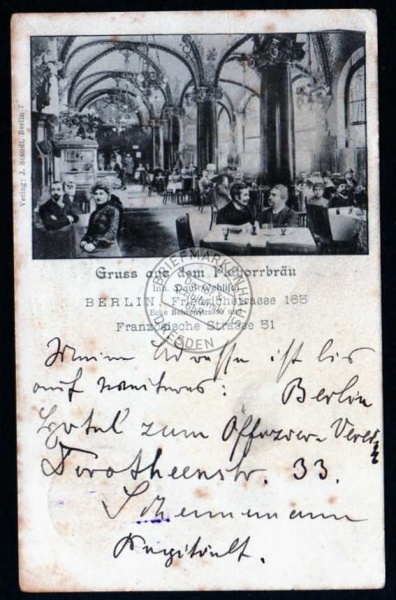 Verlag: J. Staudt, Berlin 7
Gruss aus dem Pschorrbräu
BERLIN, Friedrichstrasse 165
Ecke Behrenstrasse und
Französische Strasse 51
BRIEFMARKENHAUS
DRESDEN
Meine Adresse ist bis
auf weiteres: Berlin
Hotel zum
Dorotheenstr. 33.